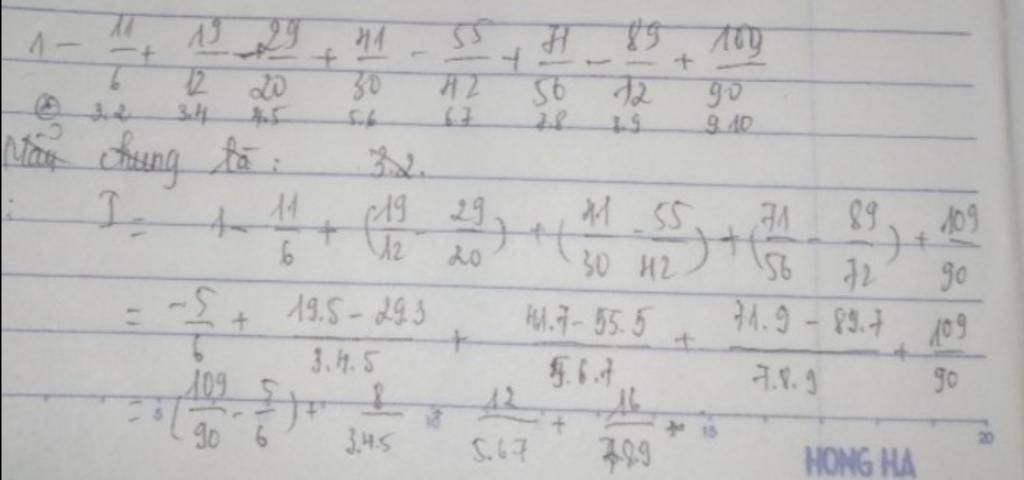 1 - 11/6 + 19/12 - 29/20 + 41/30 - 55/42 + 71/56 - 89/72 + 109/90
⊛ 3.2 3.4 4.5 5.6 6.7 7.8 8.9 9.10
Mẫu chung là: 3.2.
: I = 1 - 11/6 + (19/12 - 29/20) + (41/30 - 55/42) + (71/56 - 89/72) + 109/90
= -5/6 + (19.5 - 29.3)/(3.4.5) + (41.7 - 55.5)/(5.6.7) + (71.9 - 89.7)/(7.8.9) + 109/90
= (109/90 - 5/6) + 8/(3.4.5) 12/(5.6.7) + 16/(7.8.9) +
5 10 15 20
HONG HA